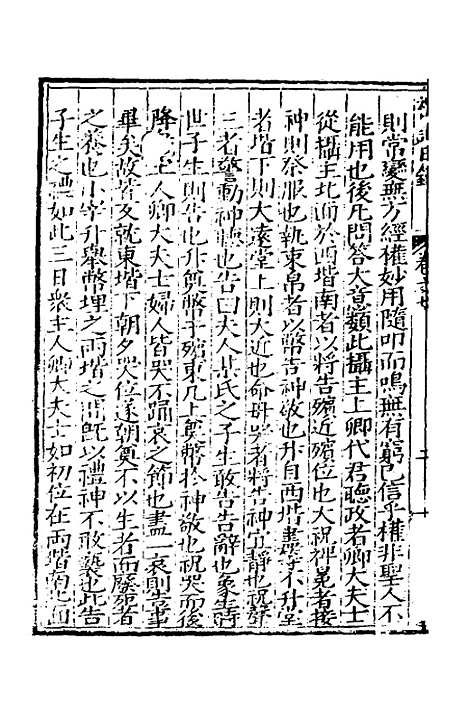 則常變無方經權妙用隨叩而鳴無有窮已信乎權非聖人不
能用也後凡問答大意類此攝主上卿代君聽政者卿大夫士
從攝主北面於西堦南者以將告殯近殯位也大祝裨冕者接
神則祭服也執束帛者以幣告神敬也升自西堦盡等不升堂
者堦下則大遠堂上則大近也命毋哭者將告神宜靜也祝聲
三者警動神聽也告曰夫人某氏之子生敢告告辭也象
世子生則告也升奠幣于殯東几上奠幣於神敬也祝哭而後
降 主人卿大夫士婦人皆哭不踊哀之節也盡一哀則
畢矣故皆反就東堦下朝夕哭位遂朝奠不以生者而廢死者
之養也小宰升舉幣埋之兩堦之間旣以禮神不敢褻也此告
子生之禮如此三日衆主人卿大夫士如初位在兩堦南北面